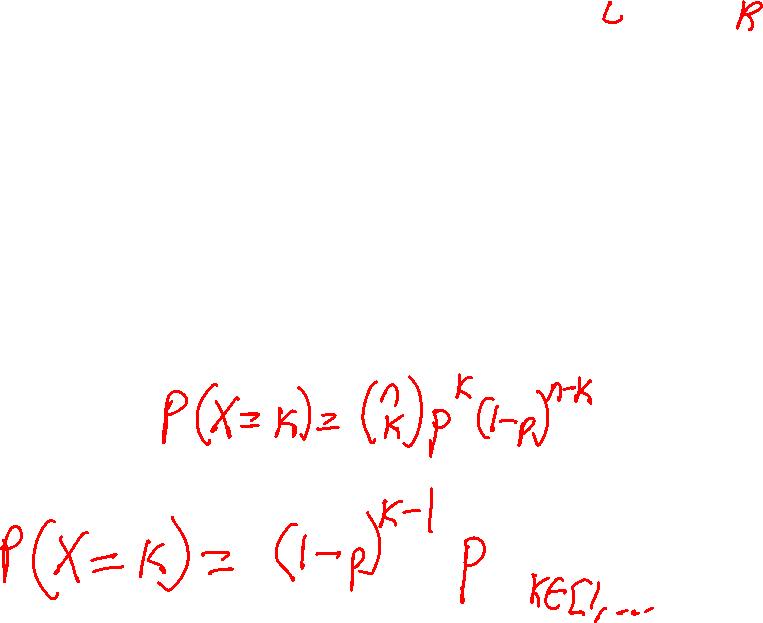 L R
P(X=k)=(n k)p^k(1-p)^n-k
P(X=k)=(1-p)^k-1 p k∈[1,...